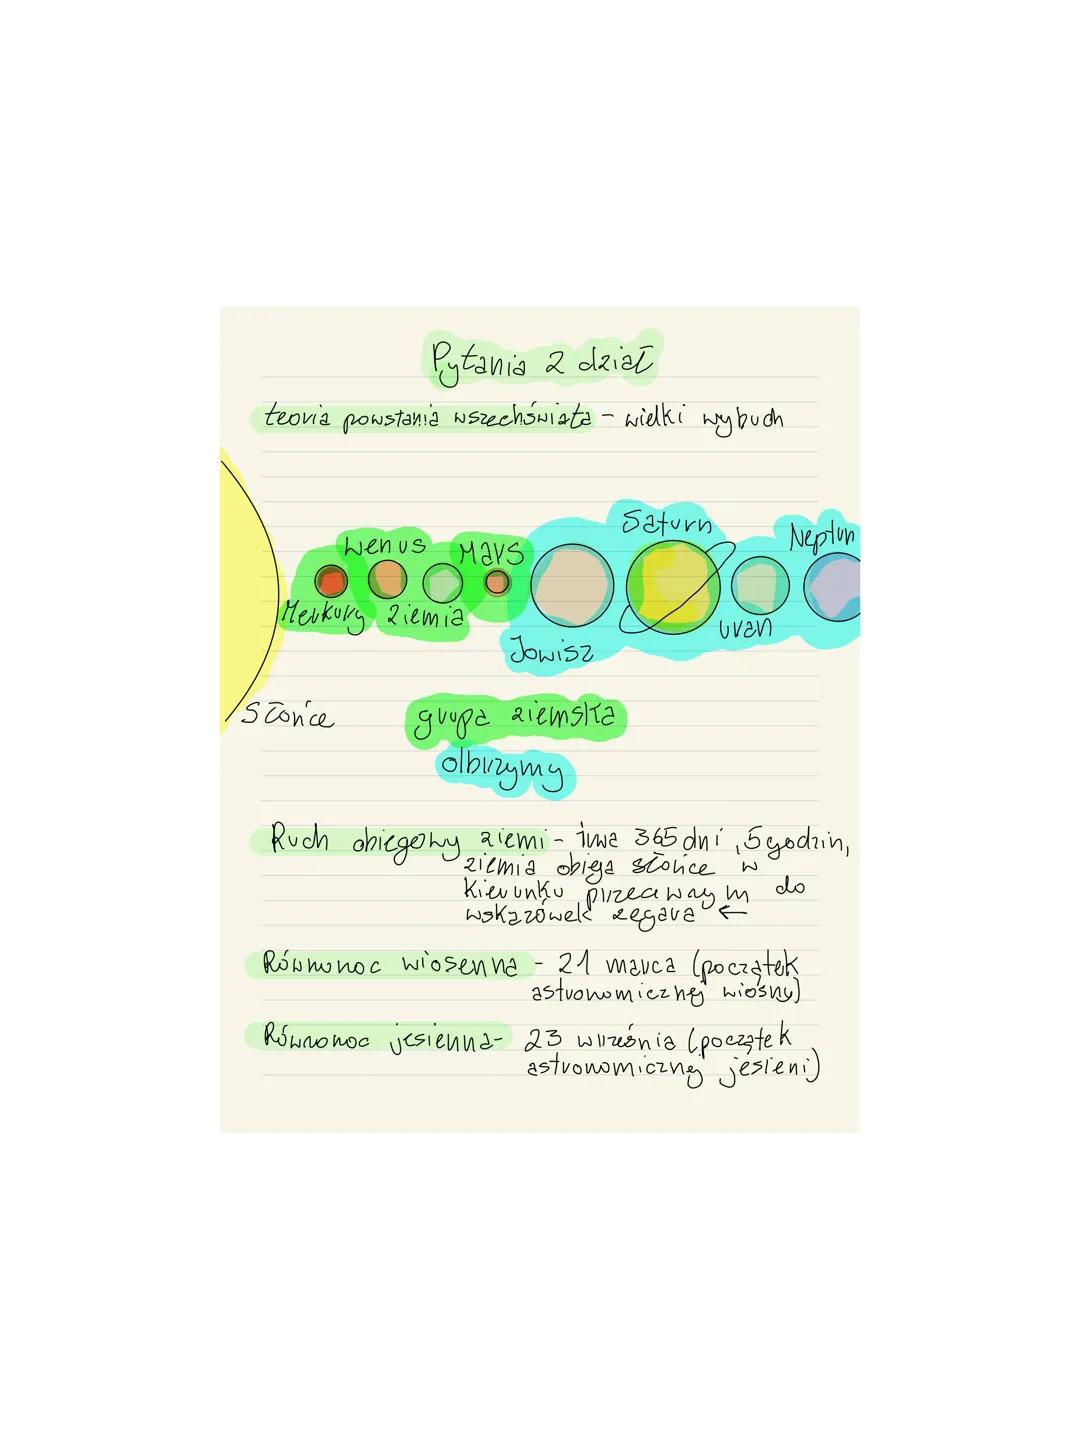 Pytania 2 dział
teoria powstania wszechświata - wielki wybuch
Saturn
Wenus Mars Neptun
Merkury Ziemia Uran
Jowisz
Słońce grupa ziemska
olbrzymy
Ruch obiegowy ziemi - trwa 365 dni, 5 godzin,
ziemia obiega słońce w
kierunku przeciwnym do
wskazówek zegara ←
Równonoc wiosenna - 21 marca (początek
astronomicznej wiosny)
Równonoc jesienna - 23 września (początek
astronomicznej jesieni)